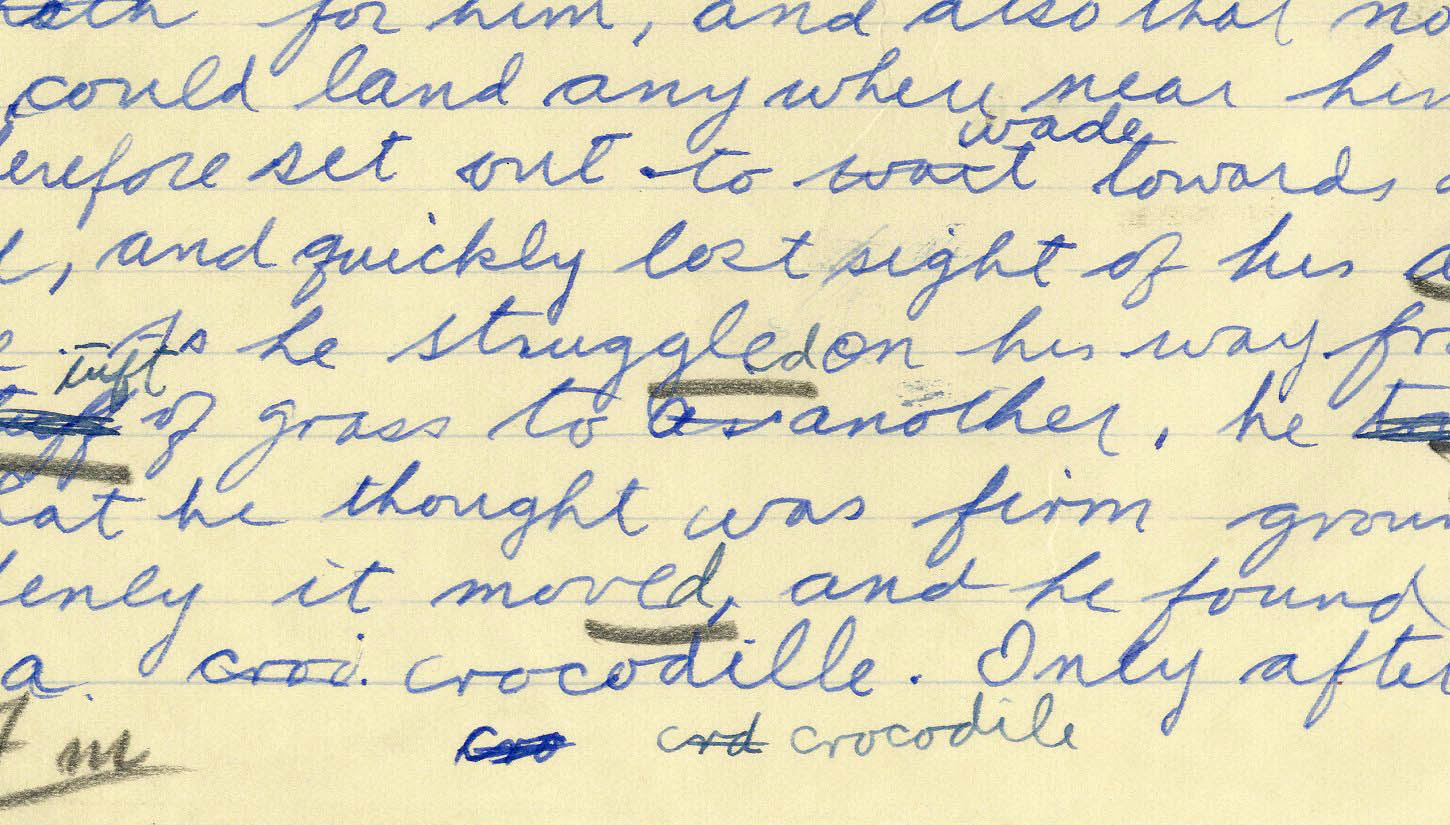 for him, and also that no
could land anywhere near him
wade
erefore set out to wait towards
, and quickly lost sight of his
tuft
As he struggled on his way fro
tuff of grass to as another, he
hat he thought was firm groun
denly it moved, and he found
a crod. crocodille. Only after
m
cro crd crocodile